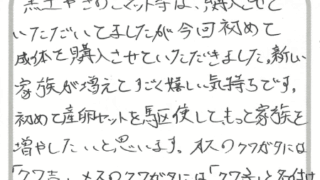 黒土やきのこマット等は、購入させて
いただいてましたが今回初めて
成体を購入させていただきました。新しい
家族が増えてすごく嬉しい気持ちです。
初めて産卵セットを駆使して、もって家族を
増やしたいと思います。オスのクワガタには
「クワ吉」メスのクワガタには「クワ